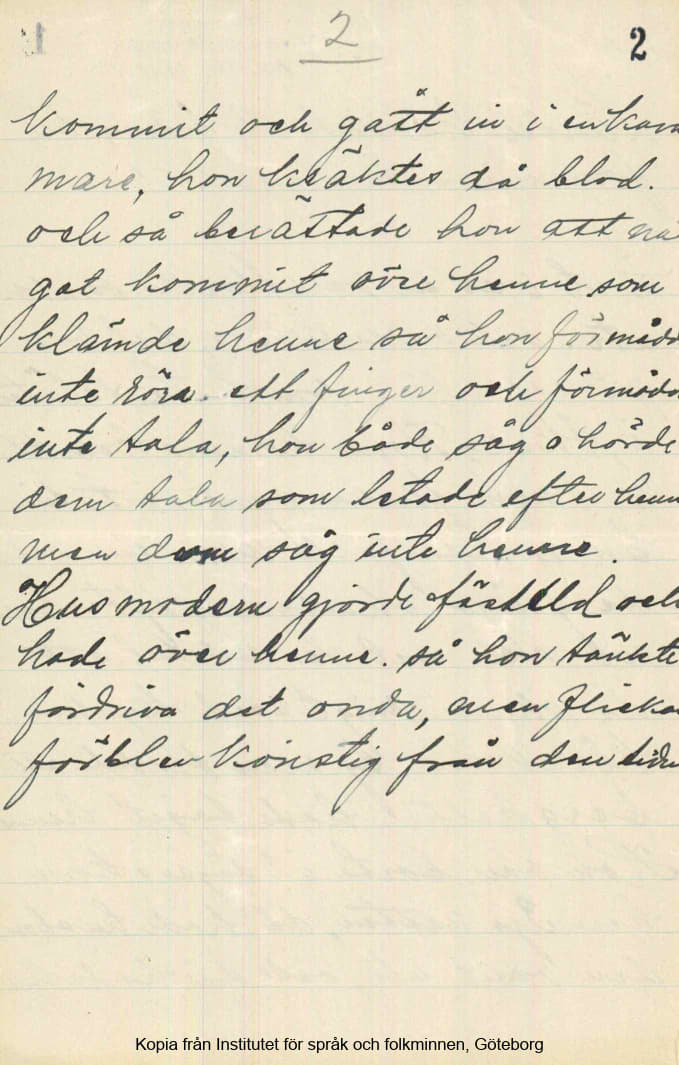 2
2
kommit och gått in i en kam
mare, hon kräktes då blod.
och så berättade hon att nå
got kommit övre henne som
klämde henne så hon förmådd
inte röra ett finger och förmådd
inte tala, hon både såg o hörde
dem tala som letade efter henn
men dom såg inte henne.
Husmodern gjorde fästeld och
hade över henne. så hon tänkte
fördriva det onda, men flickan
förblev konstig från den tiden
Kopia från Institutet för språk och folkminnen, Göteborg